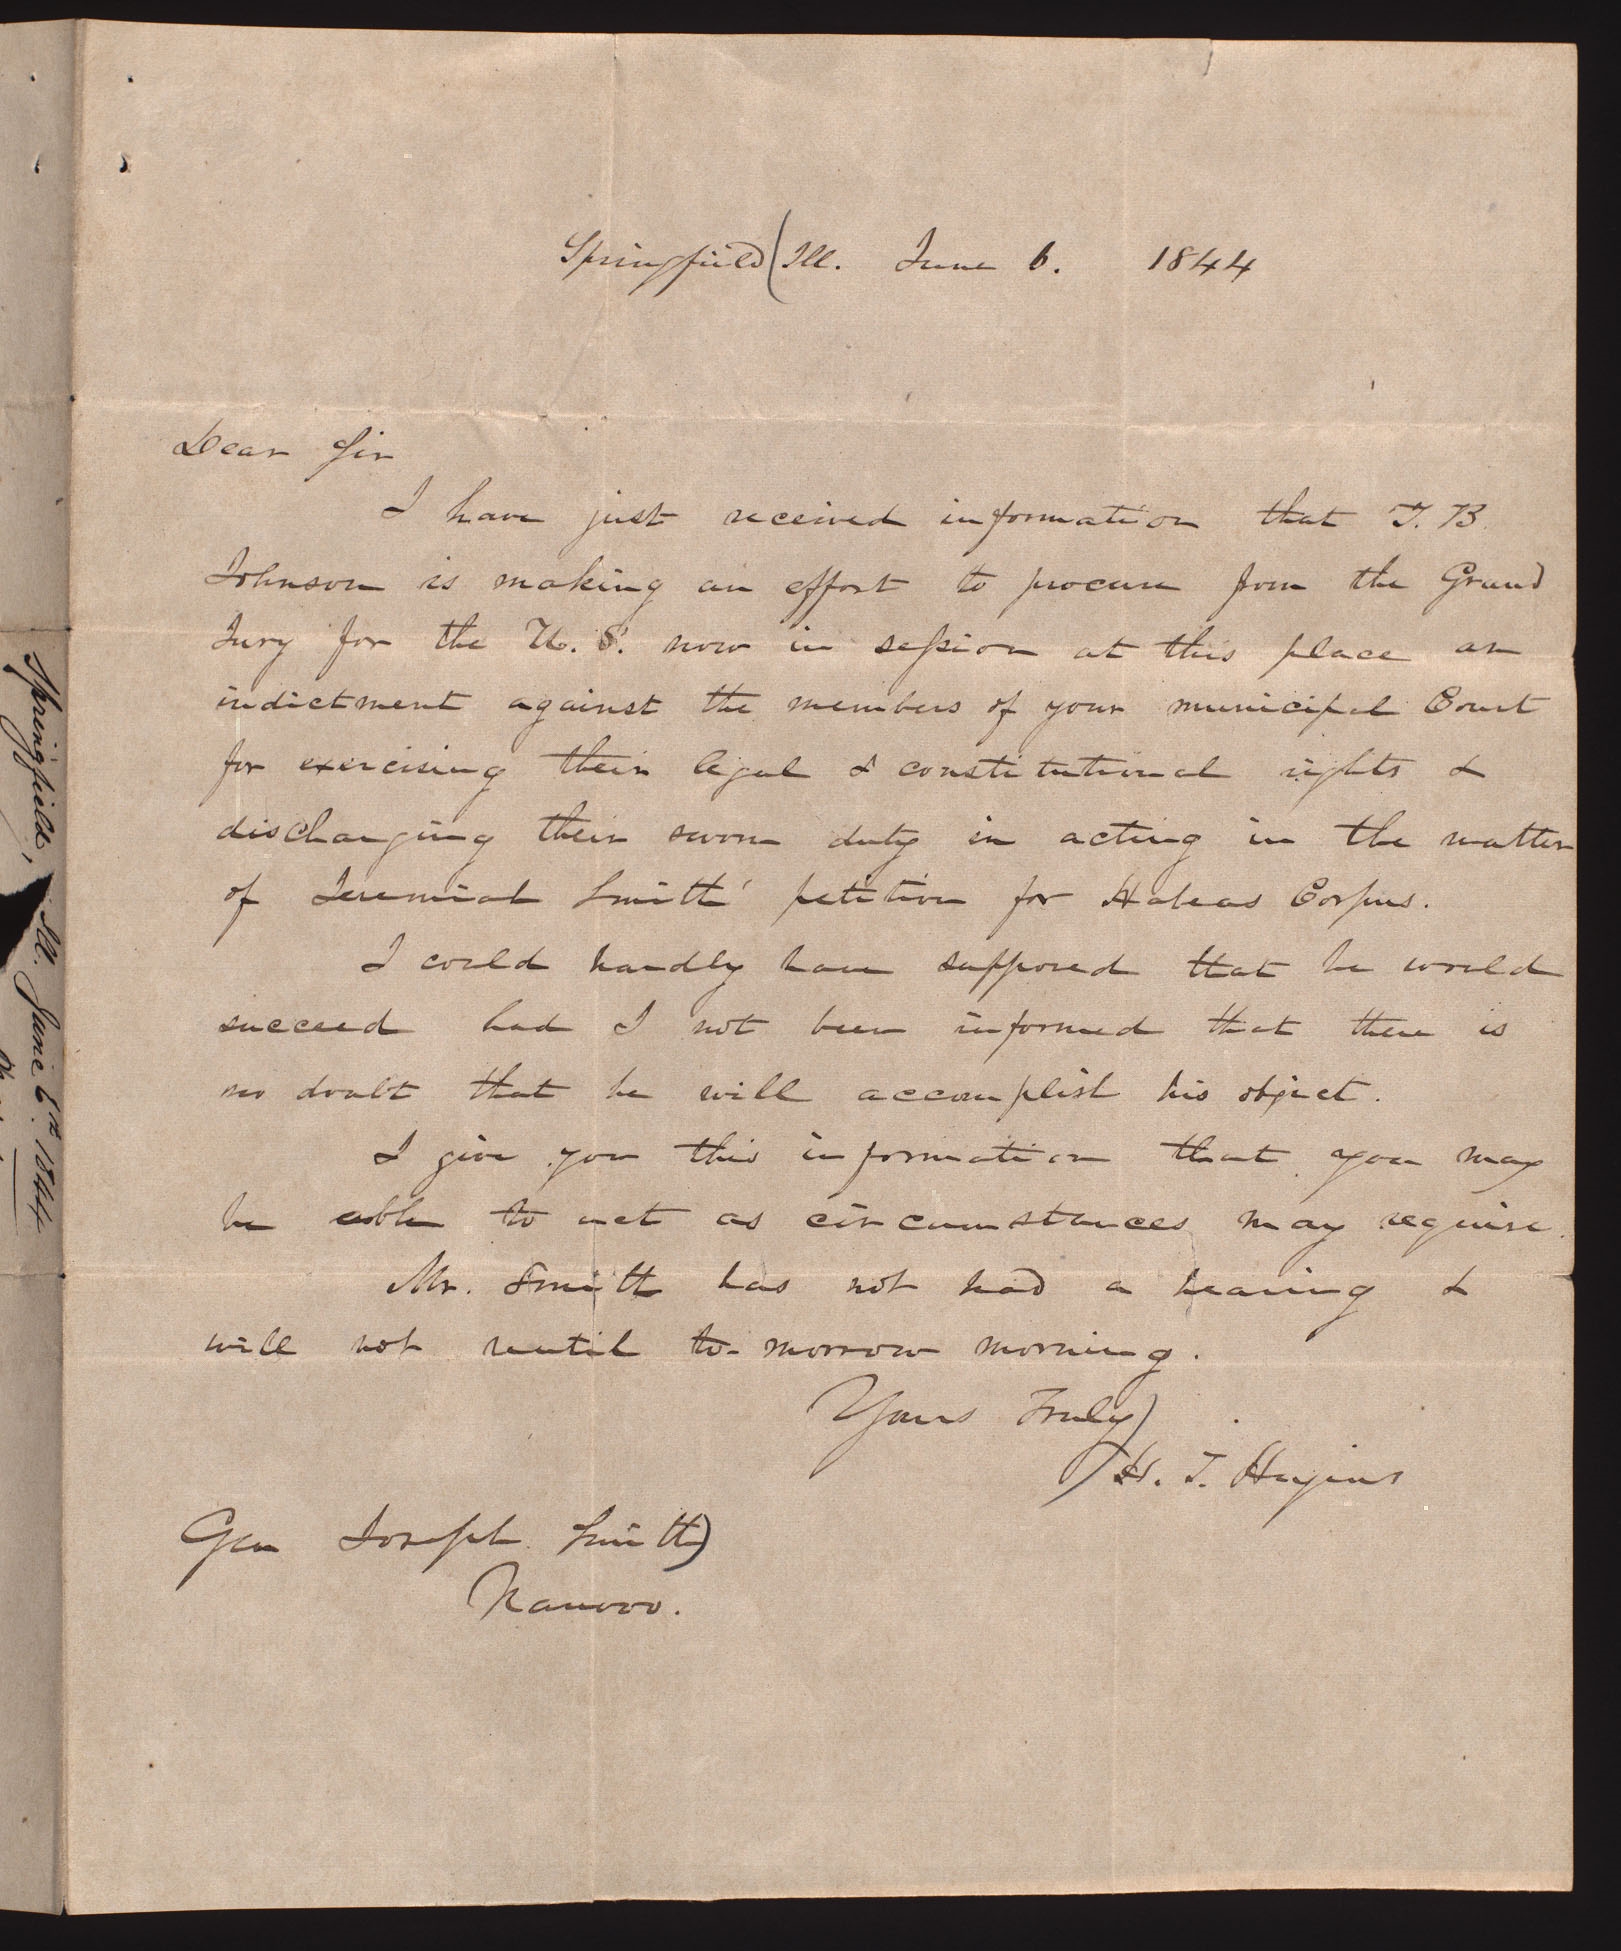 Springfield Ill. June 6. 1844
Dear Sir
I have just received information that T. B.
Johnson is making an effort to procure from the Grand
Jury for the U. S. now in session at this place an
indictment against the members of your municipal Court
for exercising their legal & constitutional rights &
discharging their sworn duty in acting in the matter
of Jeremiah Smith' petition for Habeas Corpus.
I could hardly have supposed that he would
succeed had I not been informed that there is
no doubt that he will accomplish his object.
I give you this information that you may
be able to act as circumstances may require.
Mr. Smith has not had a hearing &
will not until to-morrow morning.
Yours Truly
H. T. Hugins
Gen Joseph Smith
Nauvoo.
Springfield, Ill. June 6th. 1844